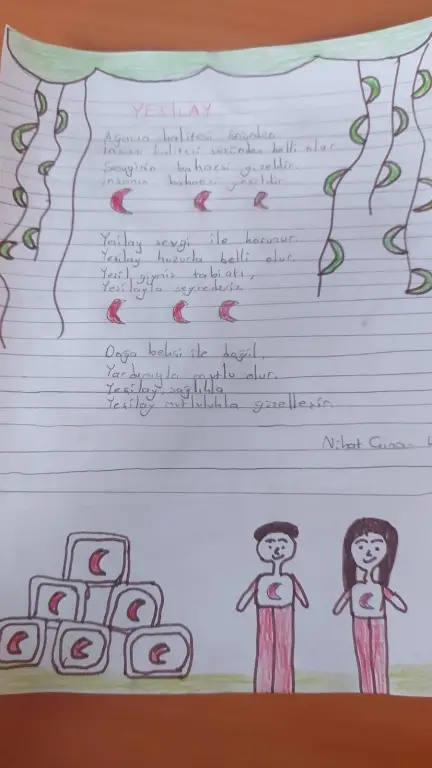 YEŞİLAY
Ağacın kalitesi özünden
İnsan kalitesi sözünden belli olur.
Sevginin bahçesi güzeldir.
insanın bahçesi yeşildir.
Yeşilay sevgi ile korunur.
Yeşilay huzurla belli olur.
Yeşil giymiş tabiatı,
Yeşilayla seyrederiz.
Doğa beksi ile değil,
Yardımıyla mutlu olur.
Yeşilay, sağlıkla
Yeşilay mutlulukla güzelleşir.
Nihat